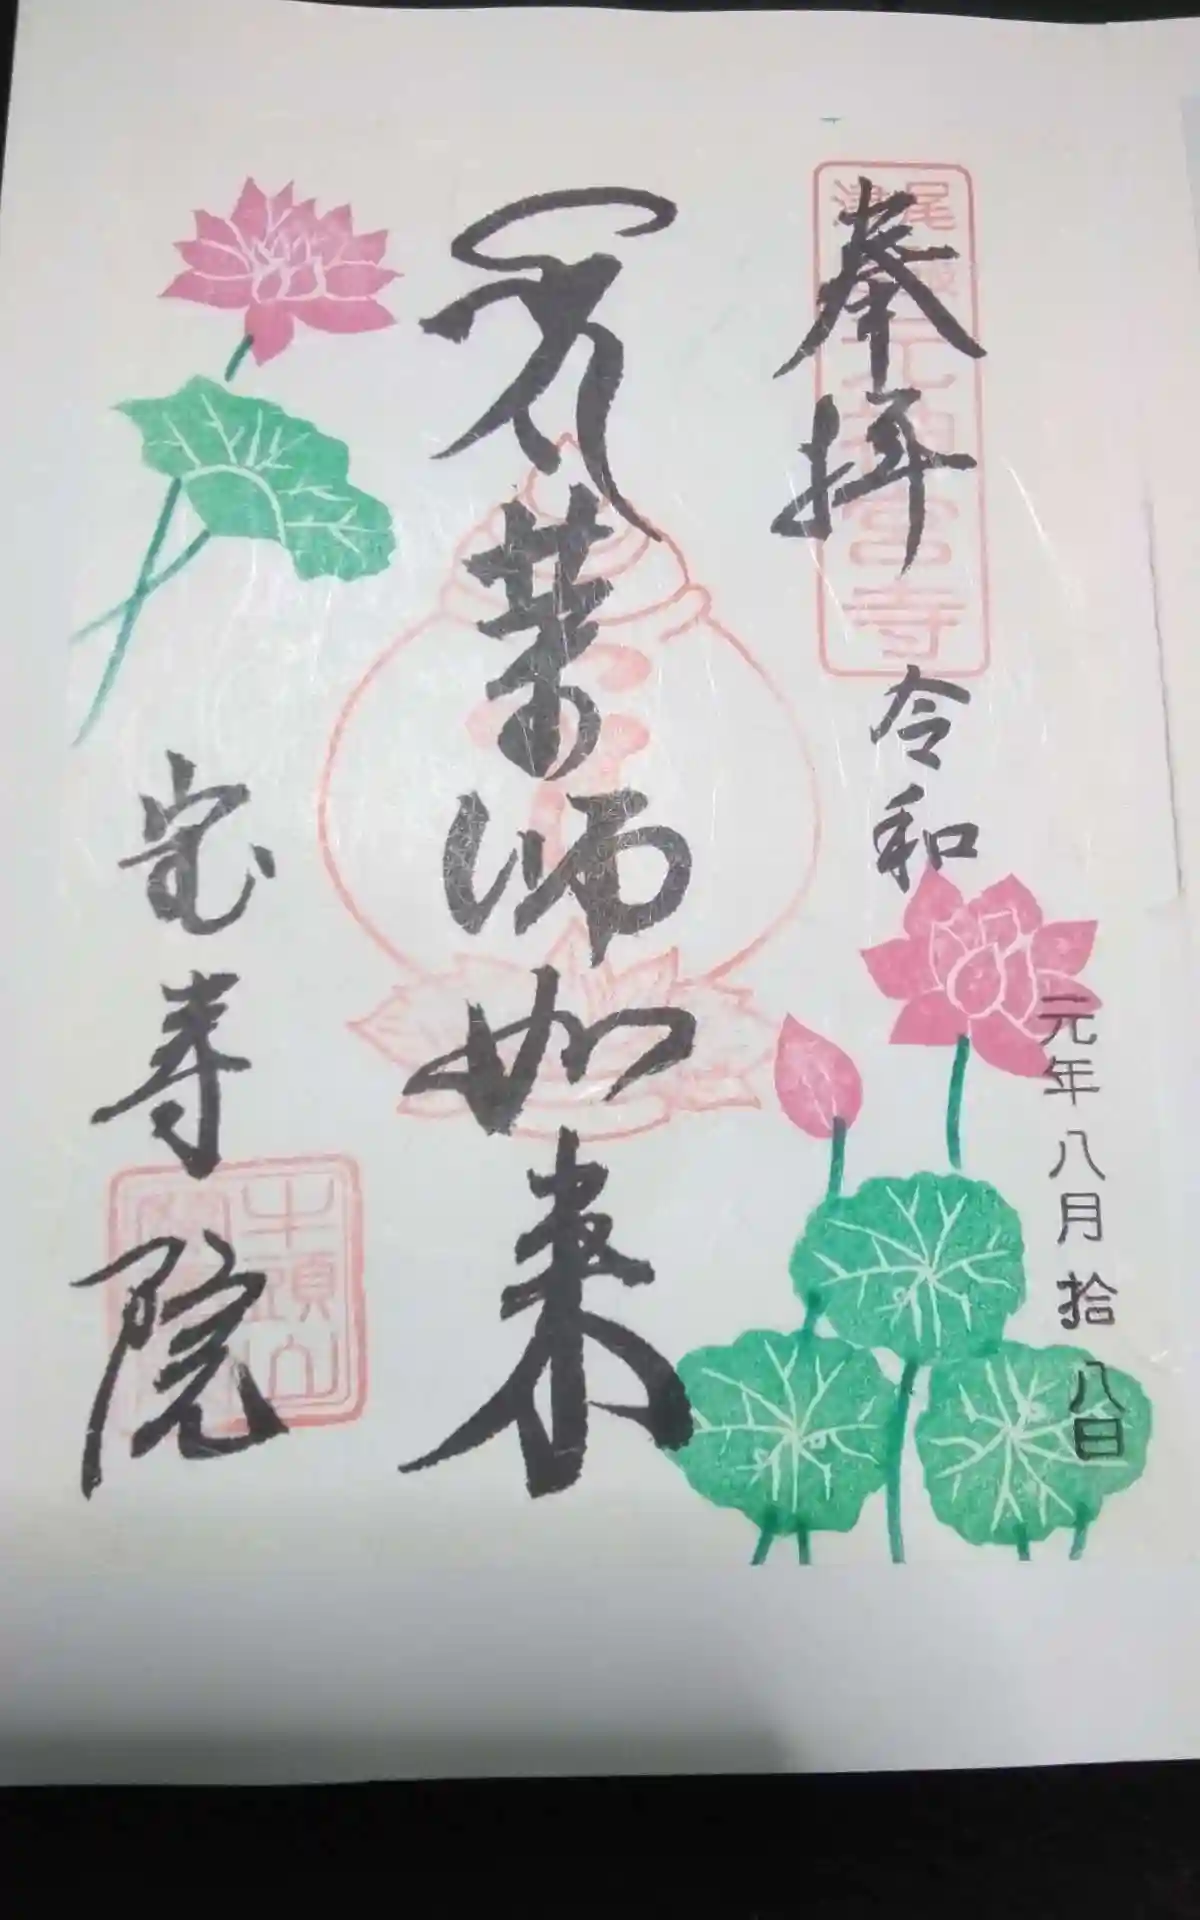 奉拝
令和
元年八月拾八日
薬師如来
宝寿院
牛頭山